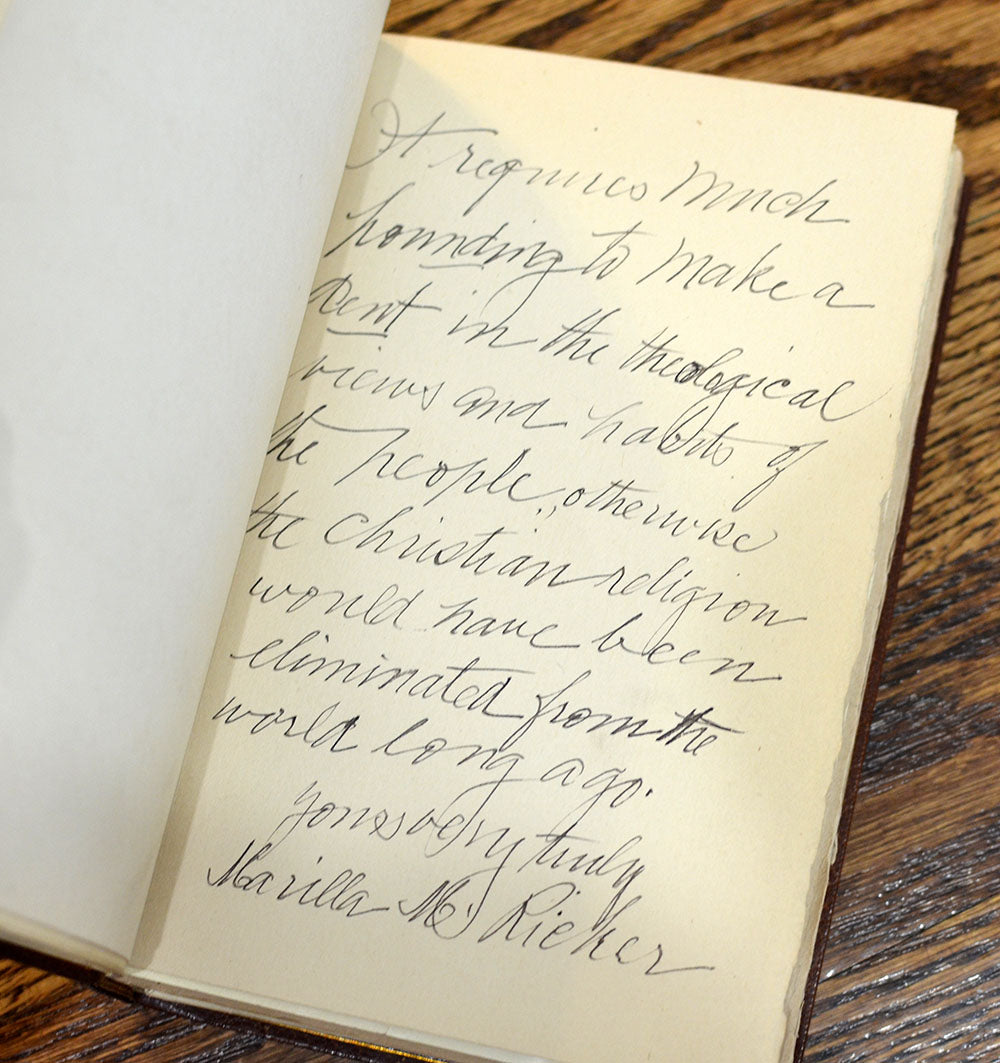 It requires much
pounding to make a
dent in the theological
views and habits of
the people, otherwise
the Christian religion
would have been
eliminated from the
world long ago.
yours very truly
Marilla M. Ricker